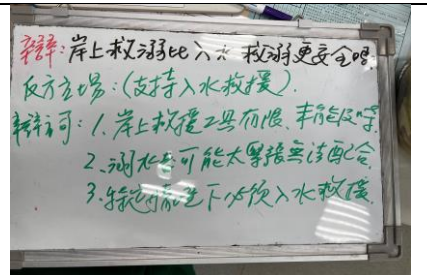 辯:岸上救溺比入水救溺更安全嗎.
反方立場:(支持入水救援).
辯詞:1.岸上救援工具有限.丰能及時
2.溺水者可能太緊張無法配合.
3.特定情況下必須入水救援.